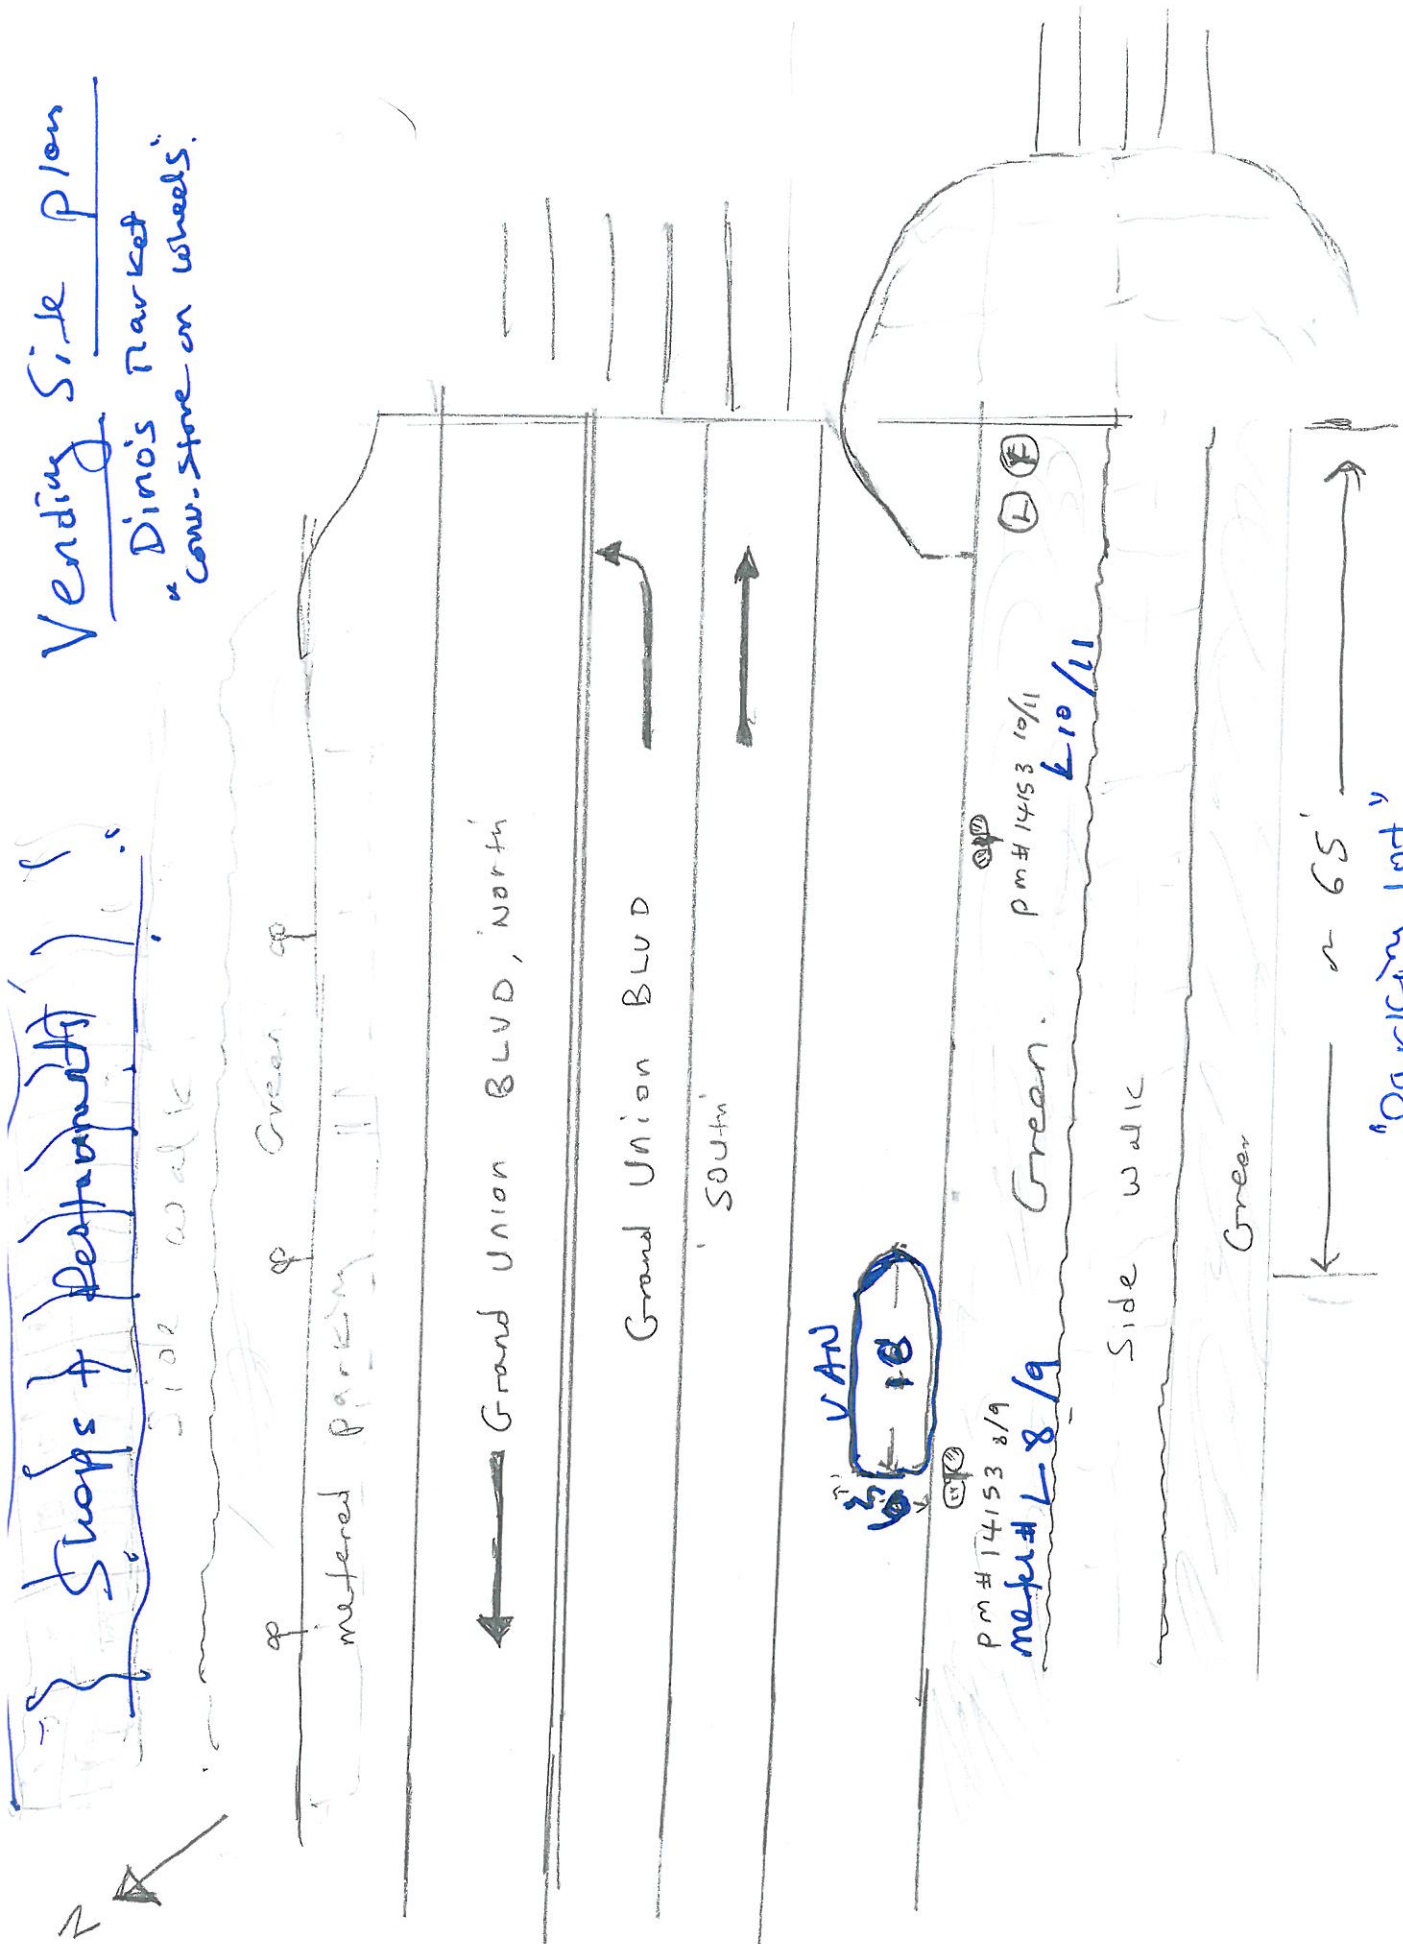 Vending Site plan
Dino's Market
"Conv. Store on wheels".
Shops & Restaurants
Side walk
Green
metered parking
N
Grand Union BLVD, North
Grand Union BLVD
South
VAN
18
pm # 14153 8/9
meter # L-8/9
pm # 14153 10/11
L10/11
L
Green.
Side walk
Green
~ 65'
"Parking lot"